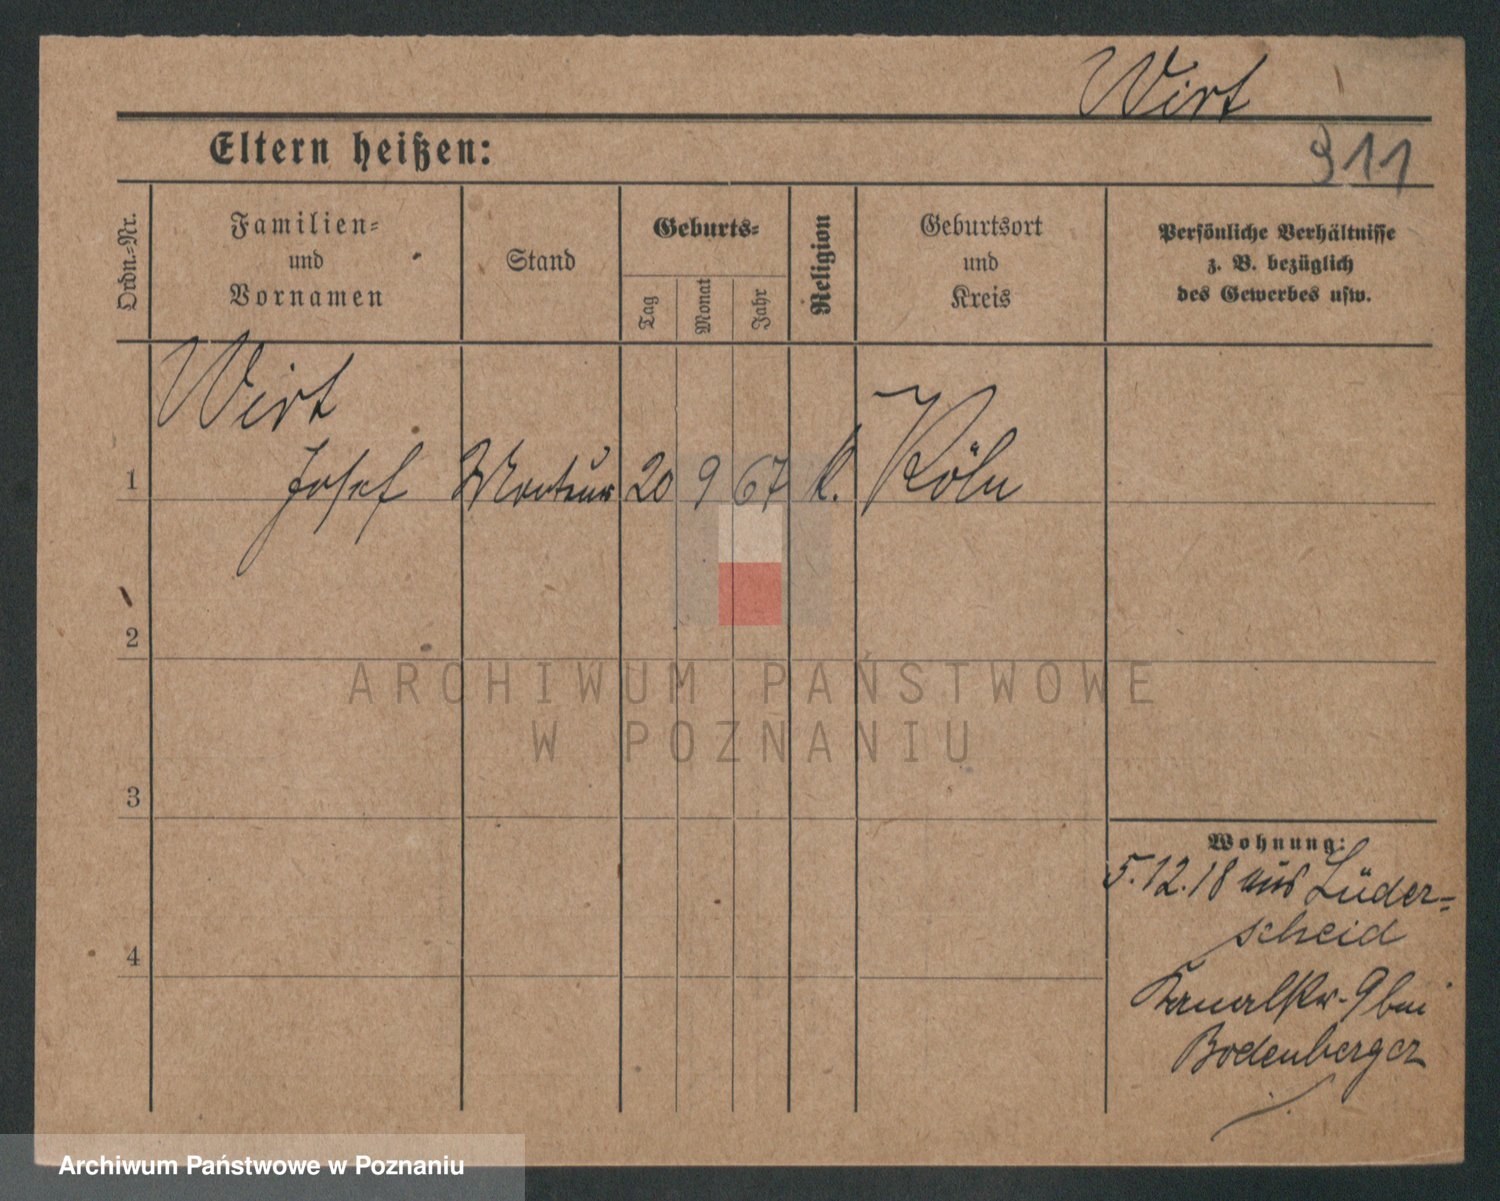 Wirt
911
Eltern heißen:
Ordn.-Nr.
Familien-
und
Vornamen
Stand
Geburts-
Tag
Monat
Jahr
Religion
Geburtsort
und
Kreis
Persönliche Verhältnisse
z. B. bezüglich
des Gewerbes usw.
Wirt
1 Josef Monteur 20 9 67 k. Köln
2
ARCHIWUM PAŃSTWOWE
W POZNANIU
3
Wohnung:
5.12.18 aus Lüder-
scheid
4
Kanalstr. 9 bei
Bodenberger
Archiwum Państwowe w Poznaniu